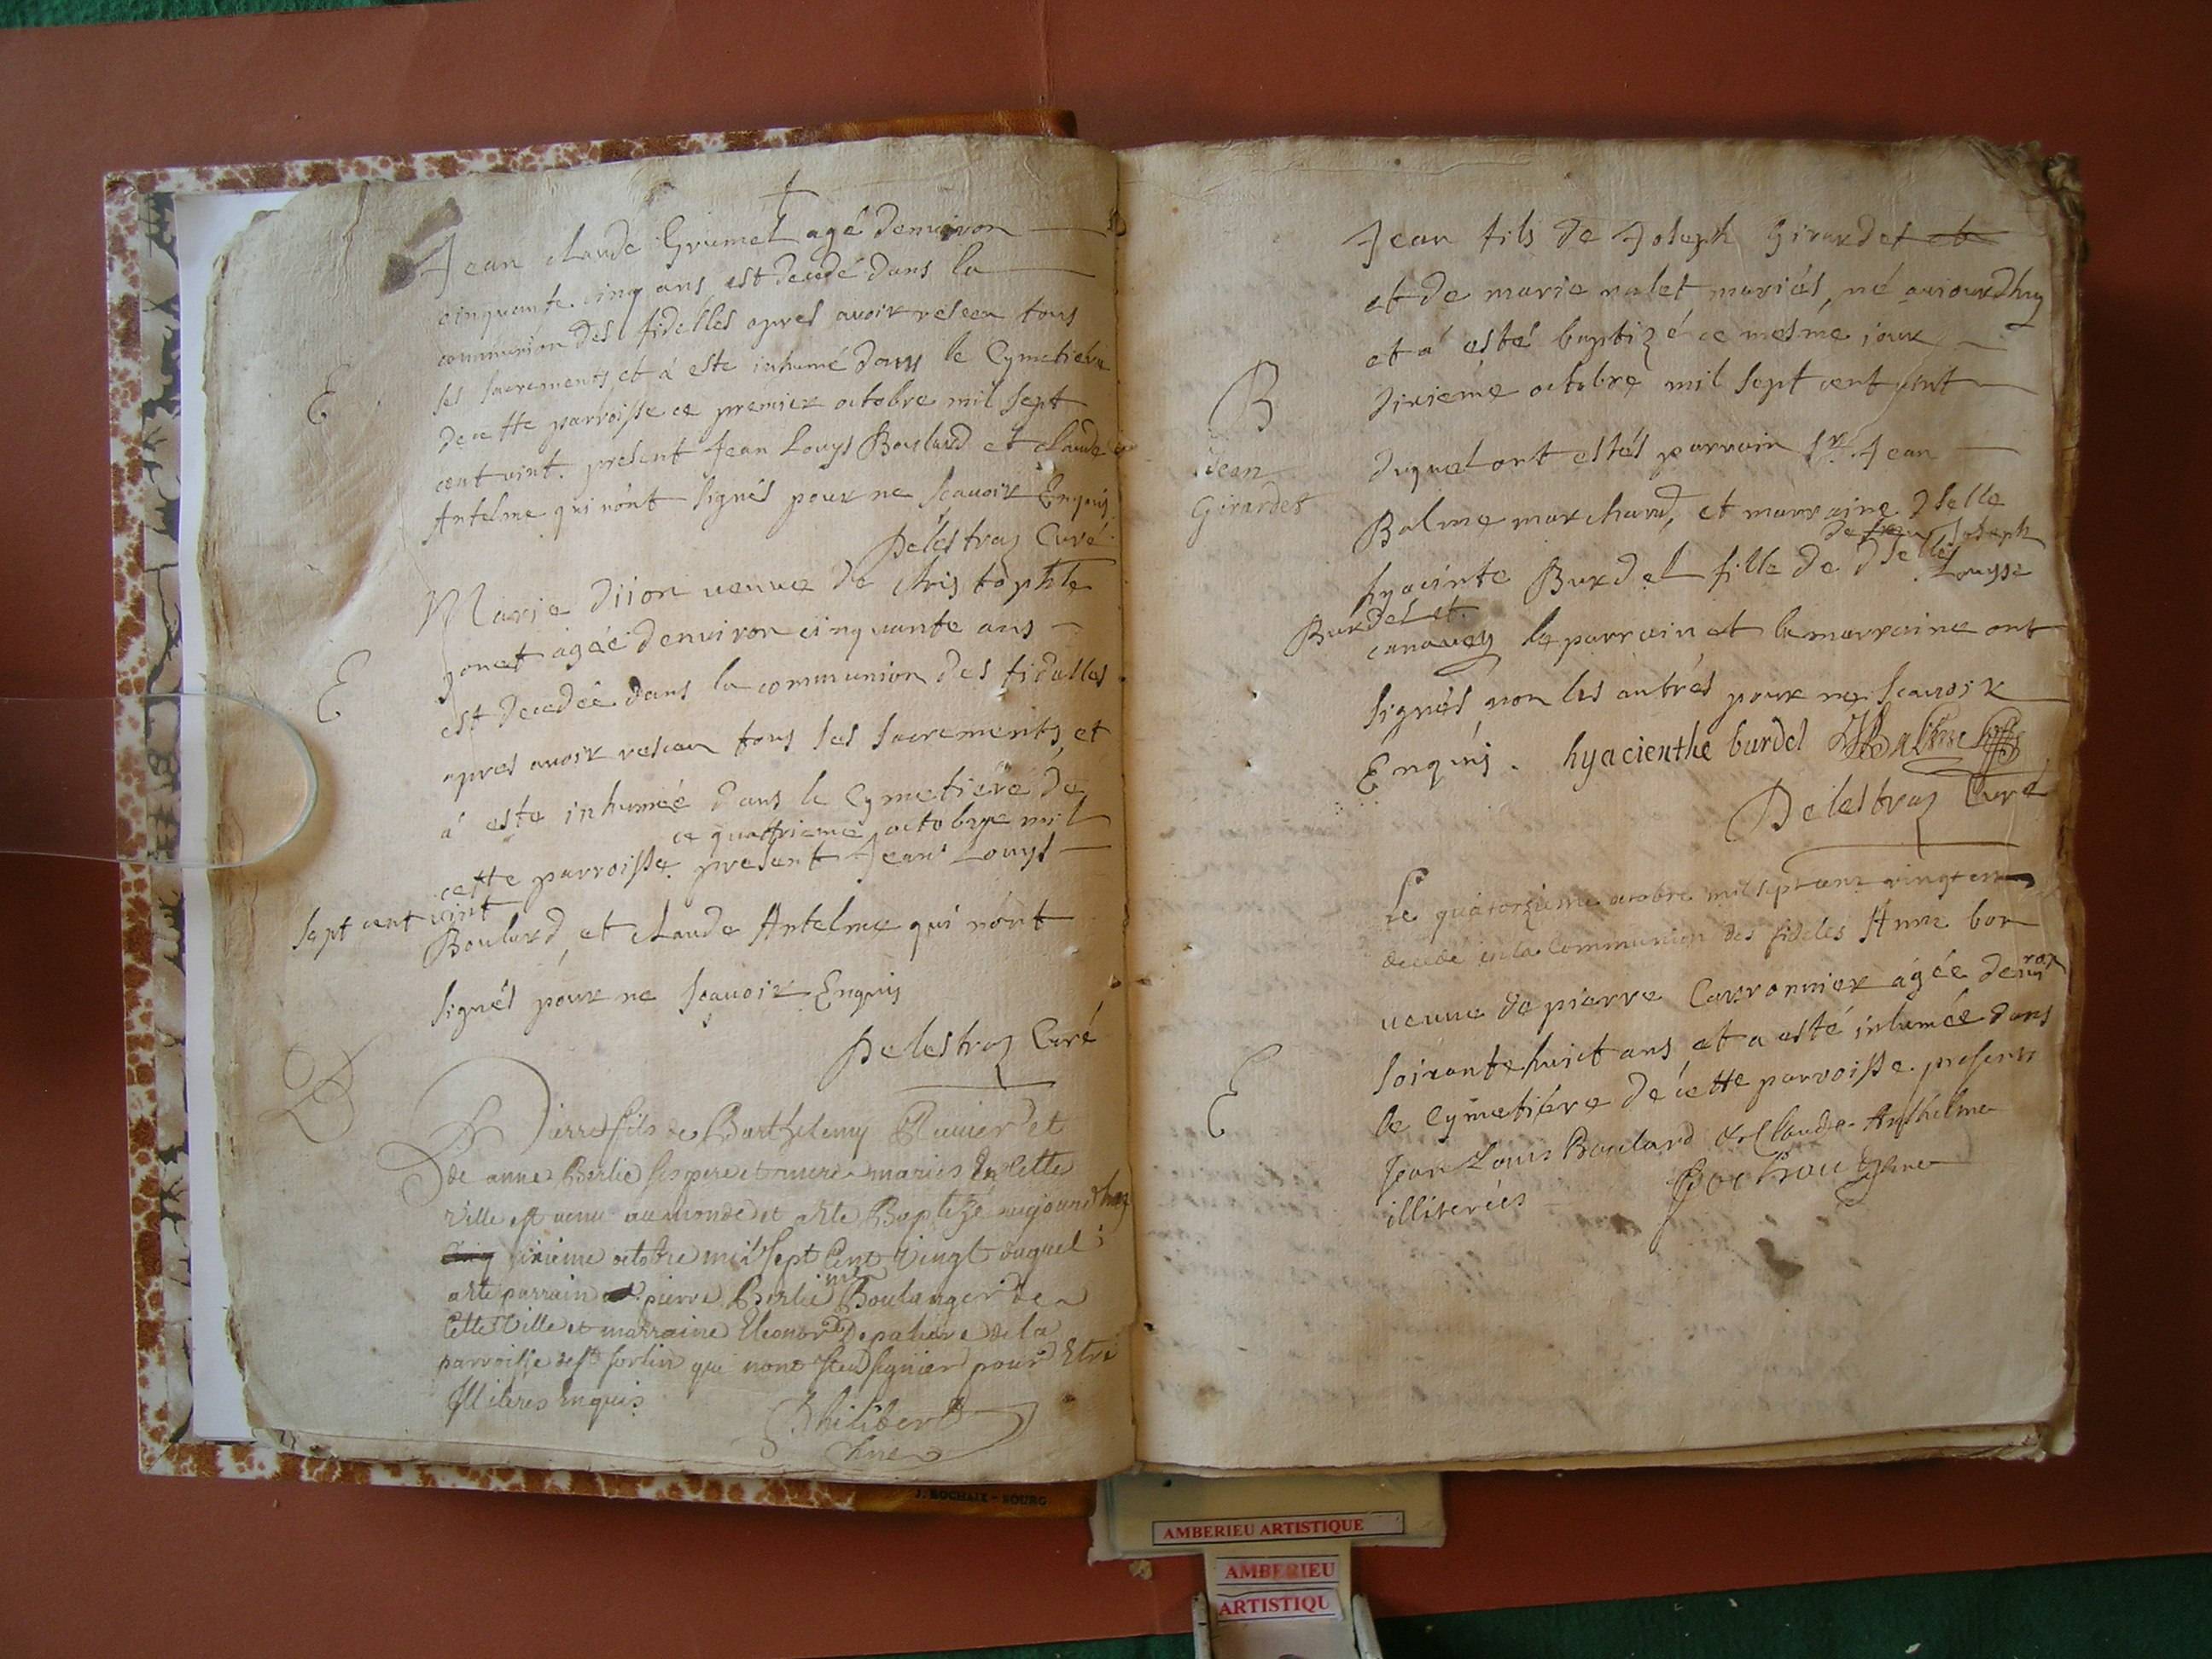 Jean claude Grumel agé denuiron
cinquante cinq ans est decedé dans la
communion des fidelles apres auoir reseu tous
ses sacrements, et à este inhumé dans le Cymetiere
E
de cette parroisse ce premier octobre mil sept
cent vint. present Jean Louys Boulard et claude
Antelme qui n'ont signés pour ne scauoir Enquis
Delestraz Curé
Marie diion veuue de christophle
agéé denuiron cinquante ans
E
est decedéé dans la communion des fidelles
apres auoir reseau tous ses sacrements, et
à este inhuméé dans le Cymetiere de
ce quattrieme octobre mil
cette parroisse. present Jean Louys
sept cent vint
Boulard, et claude Antelme qui n'ont
signés pour ne scauoir Enquis
Delestraz Curé
B
Pierre fils de Barthelemy et
de anne Berlie ses pere et mere mariés En Cette
Ville est venu au monde et a ete Baptizé aujourdhuy
sixieme octobre mil Sept Cent Vingt duquel
a ete parrain pierre Berlie Boulanger de
Cette Ville et marraine Eleonor Depaliere de la
parroisse de st sorlin qui nont sceu signier pour Etre
Illiteres Enquis
Philibert
Jean fils de Joseph Girardet et
et de marie valet mariés, né auiourdhuy
et à esté baptizé ce mesme iour
B
dixieme octobre mil sept cent vint
Jean
Girardet
duquel ont estés parrain Sr. Jean
Balme marchand, et marraine dselle
de sieur Joseph
hyacinte Burdel fille de dselle Louyse
Burdel et
canauey le parrain et la marraine ont
signés, non les autres pour ne scauoir
Enquis. hyacienthe burdel Balme
Delestraz Curé
Le quatorzieme octobre mil sept cent vingt est
decedé en la communion des fideles Anne bon
veuue de pierre Carronnier agée denuiron
soixante huict ans et a esté inhumée dans
E
le Cymetiére de cette parroisse. presents
Jean Louis Boulard & Claude Anthelme
illiterées